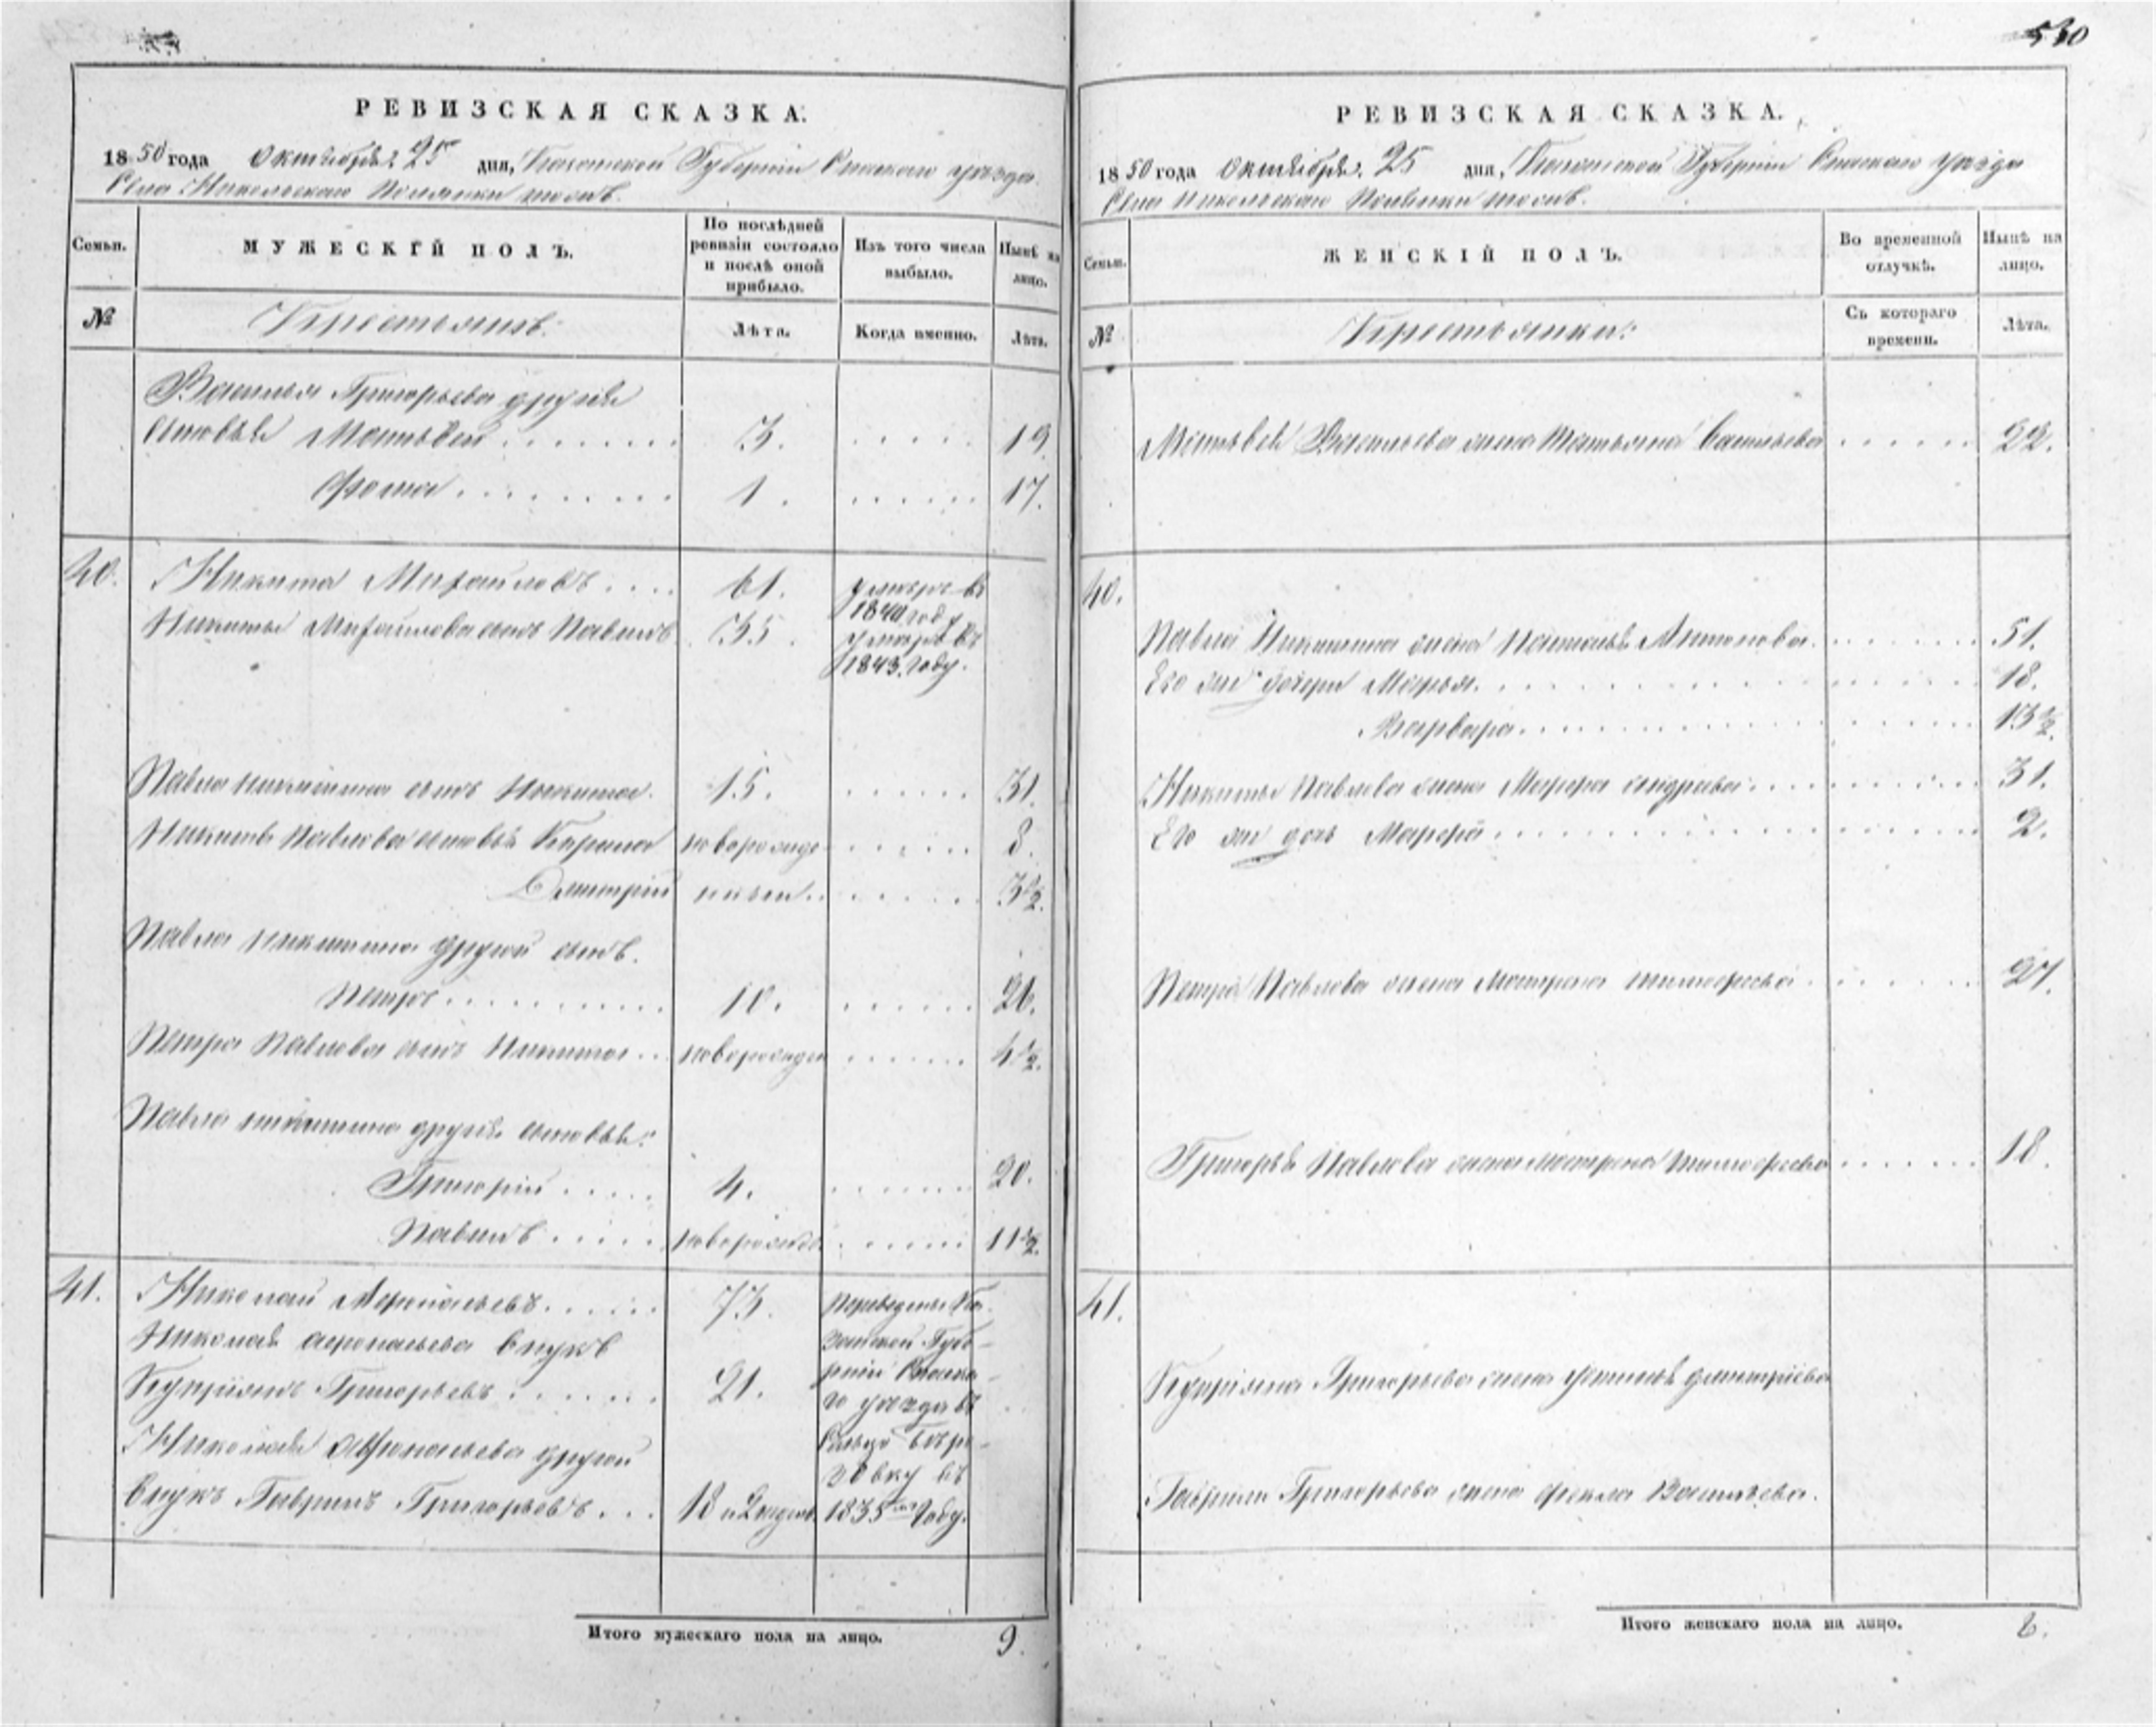 530
РЕВИЗСКАЯ СКАЗКА.
1850 года Октября 25 дня, Казанской Губернии Спаскаго уезда
Села Никольскаго Полянки тожъ.
Семьи.
МУЖЕСКІЙ ПОЛЪ.
По послѣдней ревизіи состояло и послѣ оной прибыло.
Изъ того числа выбыло.
Нынѣ на лицо.
№
Крестьянъ:
Лѣта.
Когда именно.
Лѣта.
Василья Григорьева другие
сыновья Матвей 3. 19.
Фома 1. 17.
40. Никита Михайловъ 61. умеръ въ 1840 году
Никиты Михайлова сынъ Павелъ 35. умеръ въ 1843 году.
Павла Никитина сынъ Никита. 15. 31.
Никиты Павлова сыновья Кирила новорожде 8.
Дмитрий ныи 3 1/2.
Павла Никитина другой сынъ.
Петръ 10. 26.
Петра Павлова сынъ Никита новорожден 4 1/2.
Павла Никитина другие сыновья:
Григорий 4. 20.
Павелъ новорожде 11 1/2.
41. Николай Афонасьевъ 73. Переведены Ка-
Николая Афонасьева внукъ занской Губе-
Куприянъ Григорьевъ 21. рнии Спаска-
го уезда въ
Николая Афонасьева другой
внукъ Гаврилъ Григорьевъ 18 и 2 недел. 1835 году.
Итого мужескаго пола на лицо. 9.
РЕВИЗСКАЯ СКАЗКА.
1850 года Октября 25 дня, Казанской Губернии Спаскаго уезда
Села Никольскаго Полянки тожъ.
Семьи.
ЖЕНСКІЙ ПОЛЪ.
Во временной отлучкѣ.
Нынѣ на лицо.
№
Крестьянки:
Съ котораго времени.
Лѣта.
Матвея Васильева жена Татьяна Савельева 22.
40.
Павла Никитина жена Наталья Антонова 51.
Его же дочери Марья 18.
Варвара 13 1/2.
Никиты Павлова жена Марфа 31.
Его же дочь Марфа 2.
Петра Павлова жена Матрена Тимофеева 27.
Григорья Павлова жена Матрена Тимофеева 18.
41.
Куприяна Григорьева жена Устинья Дмитриева
Гаврилы Григорьева жена Фекла Васильева.
Итого женскаго пола на лицо. 8.